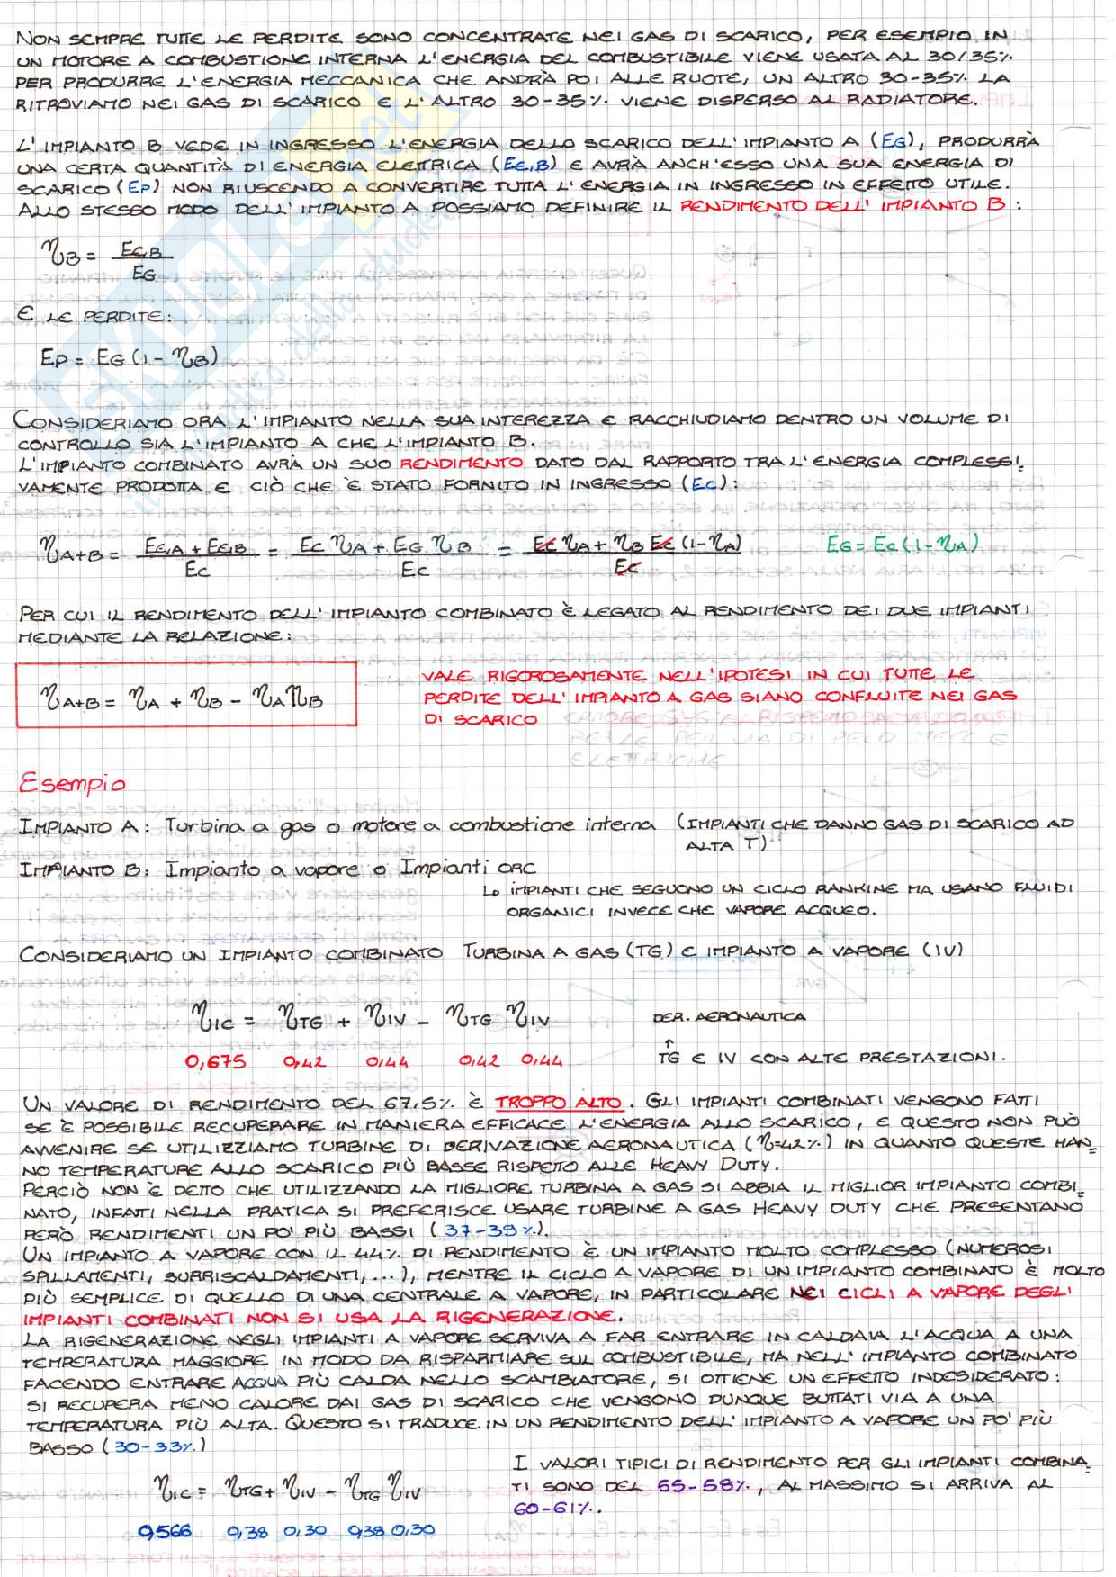 NON SEMPRE TUTTE LE PERDITE SONO CONCENTRATE NEI GAS DI SCARICO, PER ESEMPIO IN
UN MOTORE A COMBUSTIONE INTERNA L'ENERGIA DEL COMBUSTIBILE VIENE USATA AL 30/35%
PER PRODURRE L'ENERGIA MECCANICA CHE ANDRÀ POI ALLE RUOTE, UN ALTRO 30-35% LA
RITROVIAMO NEI GAS DI SCARICO E L'ALTRO 30-35% VIENE DISPERSO AL RADIATORE.
L'IMPIANTO B VEDE IN INGRESSO L'ENERGIA DELLO SCARICO DELL'IMPIANTO A (EG), PRODURRÀ
UNA CERTA QUANTITÀ DI ENERGIA ELETTRICA (EE,B) E AVRÀ ANCH'ESSO UNA SUA ENERGIA DI
SCARICO (EP) NON RIUSCENDO A CONVERTIRE TUTTA L'ENERGIA IN INGRESSO IN EFFETTO UTILE.
ALLO STESSO MODO DELL'IMPIANTO A POSSIAMO DEFINIRE IL RENDIMENTO DELL'IMPIANTO B:
ηB = EE,B / EG
E LE PERDITE:
EP = EG (1 - ηB)
CONSIDERIAMO ORA L'IMPIANTO NELLA SUA INTEREZZA E RACCHIUDIAMO DENTRO UN VOLUME DI
CONTROLLO SIA L'IMPIANTO A CHE L'IMPIANTO B.
L'IMPIANTO COMBINATO AVRÀ UN SUO RENDIMENTO DATO DAL RAPPORTO TRA L'ENERGIA COMPLESSI-
VAMENTE PRODOTTA E CIÒ CHE È STATO FORNITO IN INGRESSO (EC):
ηA+B = EE,A + EE,B / EC = EC ηA + EG ηB / EC = EC ηA + ηB EC (1-ηA) / EC    EG = EC (1-ηA)
PER CUI IL RENDIMENTO DELL'IMPIANTO COMBINATO È LEGATO AL RENDIMENTO DEI DUE IMPIANTI
MEDIANTE LA RELAZIONE:
ηA+B = ηA + ηB - ηA ηB
VALE RIGOROSAMENTE NELL'IPOTESI IN CUI TUTTE LE
PERDITE DELL'IMPIANTO A GAS SIANO CONFLUITE NEI GAS
DI SCARICO
Esempio
IMPIANTO A: Turbina a gas o motore a combustione interna (IMPIANTI CHE DANNO GAS DI SCARICO AD
ALTA T)
IMPIANTO B: Impianto a vapore o Impianti ORC
↳ IMPIANTI CHE SEGUONO UN CICLO RANKINE MA USANO FLUIDI
ORGANICI INVECE CHE VAPORE ACQUEO.
CONSIDERIAMO UN IMPIANTO COMBINATO TURBINA A GAS (TG) E IMPIANTO A VAPORE (IV)
ηIC = ηTG + ηIV - ηTG ηIV    DER. AERONAUTICA
↑
0,675 0,42 0,44 0,42 0,44    TG E IV CON ALTE PRESTAZIONI.
UN VALORE DI RENDIMENTO DEL 67.5% È TROPPO ALTO. GLI IMPIANTI COMBINATI VENGONO FATTI
SE È POSSIBILE RECUPERARE IN MANIERA EFFICACE L'ENERGIA ALLO SCARICO, E QUESTO NON PUÒ
AVVENIRE SE UTILIZZIAMO TURBINE DI DERIVAZIONE AERONAUTICA (η=42%) IN QUANTO QUESTE HAN-
NO TEMPERATURE ALLO SCARICO PIÙ BASSE RISPETTO ALLE HEAVY DUTY.
PERCIÒ NON È DETTO CHE UTILIZZANDO LA MIGLIORE TURBINA A GAS SI ABBIA IL MIGLIOR IMPIANTO COMBI-
NATO, INFATTI NELLA PRATICA SI PREFERISCE USARE TURBINE A GAS HEAVY DUTY CHE PRESENTANO
PERÒ RENDIMENTI UN PO' PIÙ BASSI (37-39%).
UN IMPIANTO A VAPORE CON IL 44% DI RENDIMENTO È UN IMPIANTO MOLTO COMPLESSO (NUMEROSI
SPILLAMENTI, SURRISCALDAMENTI,...), MENTRE IL CICLO A VAPORE DI UN IMPIANTO COMBINATO È MOLTO
PIÙ SEMPLICE DI QUELLO DI UNA CENTRALE A VAPORE, IN PARTICOLARE NEI CICLI A VAPORE DEGLI
IMPIANTI COMBINATI NON SI USA LA RIGENERAZIONE.
LA RIGENERAZIONE NEGLI IMPIANTI A VAPORE SERVIVA A FAR ENTRARE IN CALDAIA L'ACQUA A UNA
TEMPERATURA MAGGIORE IN MODO DA RISPARMIARE SUL COMBUSTIBILE, MA NELL'IMPIANTO COMBINATO
FACENDO ENTRARE ACQUA PIÙ CALDA NELLO SCAMBIATORE, SI OTTIENE UN EFFETTO INDESIDERATO:
SI RECUPERA MENO CALORE DAI GAS DI SCARICO CHE VENGONO DUNQUE BUTTATI VIA A UNA
TEMPERATURA PIÙ ALTA. QUESTO SI TRADUCE IN UN RENDIMENTO DELL'IMPIANTO A VAPORE UN PO' PIÙ
BASSO (30-33%)
ηIC = ηTG + ηIV - ηTG ηIV
0,566 0,38 0,30 0,38 0,30
I VALORI TIPICI DI RENDIMENTO PER GLI IMPIANTI COMBINA-
TI SONO DEL 55-58%, AL MASSIMO SI ARRIVA AL
60-61%.